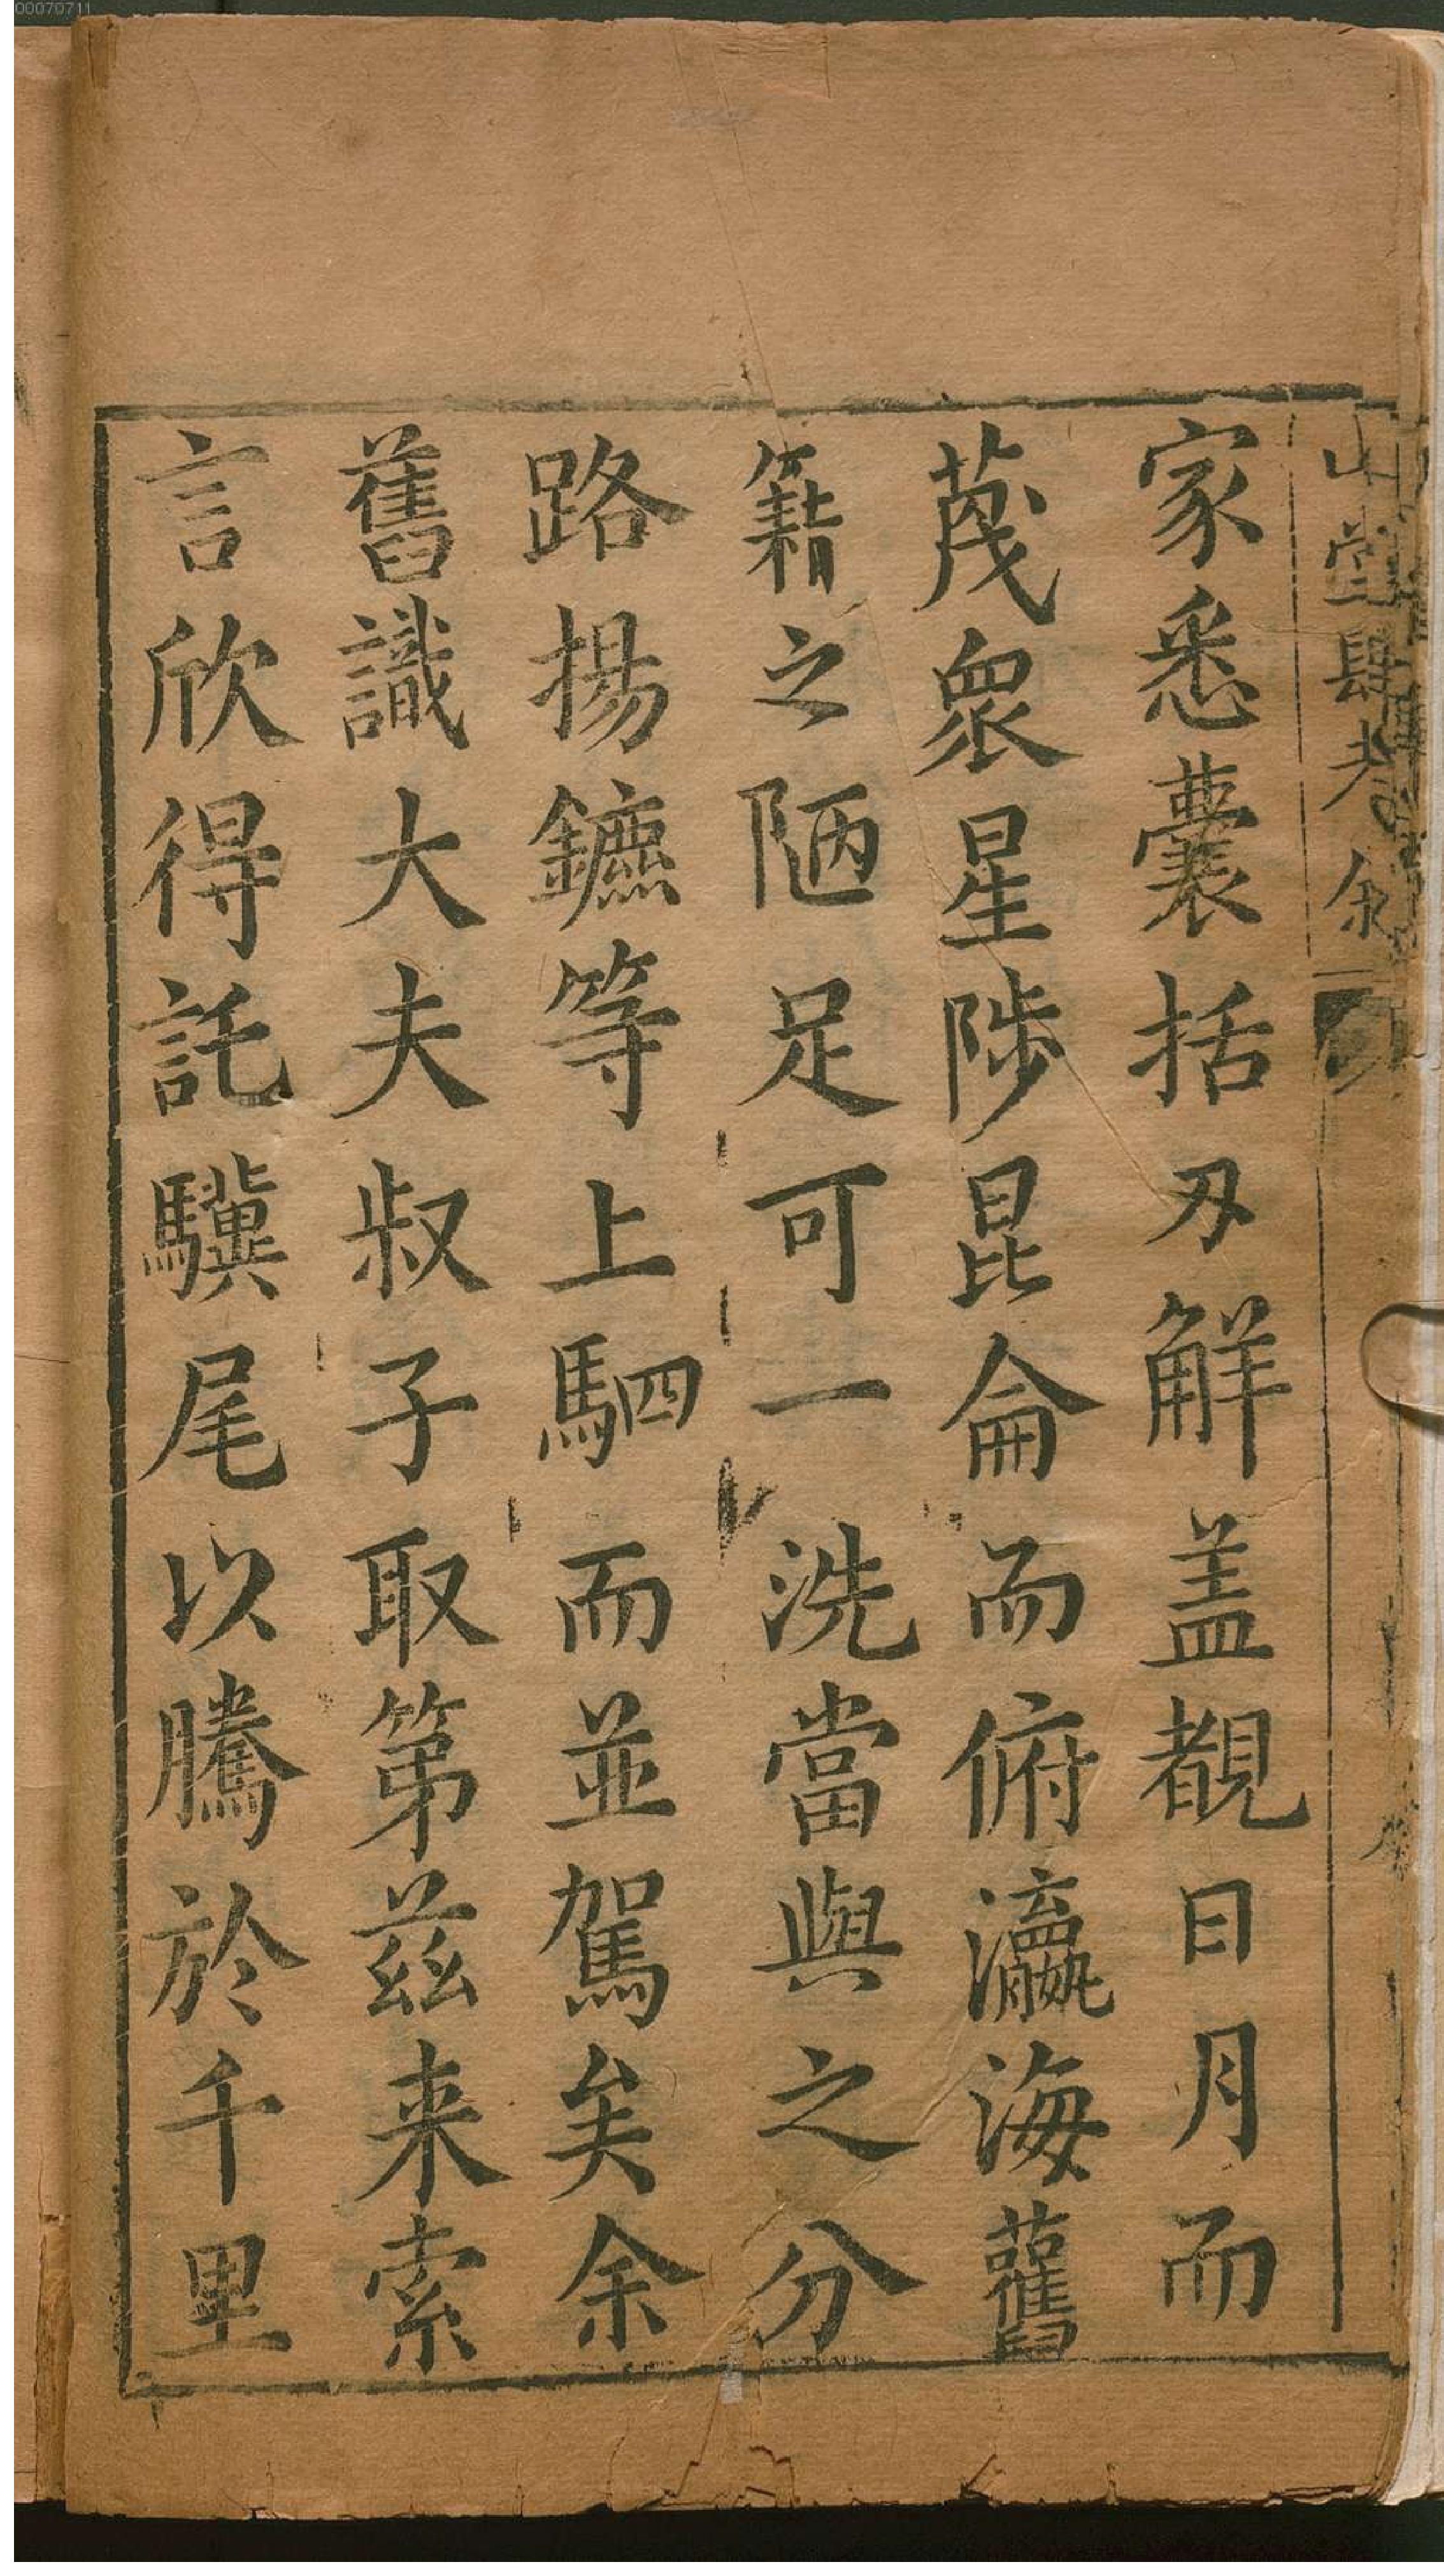 00070711
山堂肆考
家悉囊括刃解盖覩日月而
蔑衆星陟昆侖而俯瀛海舊
籍之陋足可一洗當與之分
路揚鑣等上駟而並駕矣余
舊識大夫叔子取第茲来索
言欣得託驥尾以騰於千里